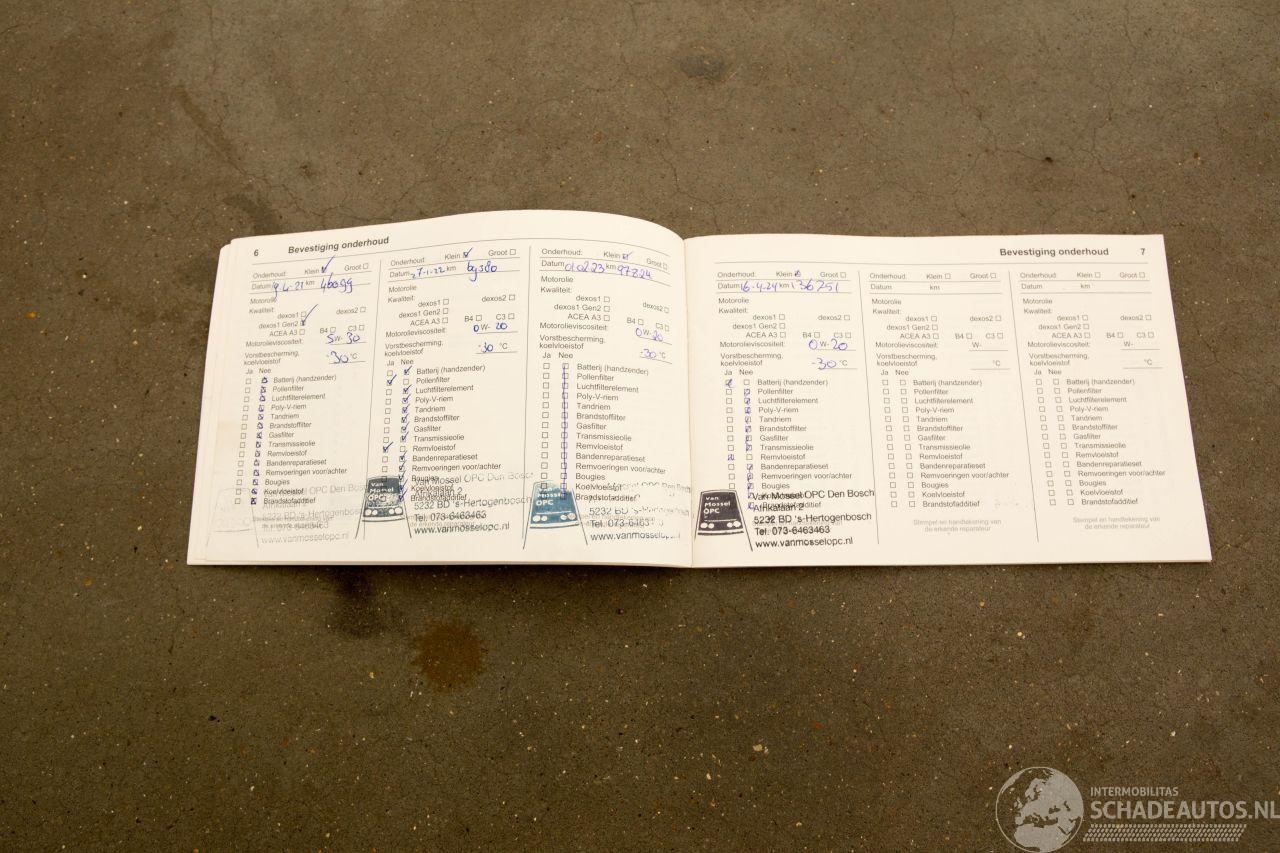 6 Bevestiging onderhoud
Onderhoud: Klein Groot
Datum 9.4.21 km
Motorolie
Kwaliteit:
dexos1 dexos2
dexos1 Gen2
ACEA A3 B4 C3
Motorolieviscositeit: 5W-30
Vorstbescherming,
koelvloeistof -30 °C
Ja Nee
Batterij (handzender)
Pollenfilter
Luchtfilterelement
Poly-V-riem
Tandriem
Brandstoffilter
Gasfilter
Transmissieolie
Remvloeistof
Bandenreparatieset
Remvoeringen voor/achter
Bougies
Koelvloeistof
Brandstofadditief
OPC Den Bosch
Afrikalaan 2
Onderhoud: Klein Groot
Datum 27-1-22 km
Motorolie
Kwaliteit:
dexos1 dexos2
dexos1 Gen2
ACEA A3 B4 C3
Motorolieviscositeit: 0W-20
Vorstbescherming,
koelvloeistof -30 °C
Ja Nee
Batterij (handzender)
Pollenfilter
Luchtfilterelement
Poly-V-riem
Tandriem
Brandstoffilter
Gasfilter
Transmissieolie
Remvloeistof
Bandenreparatieset
Remvoeringen voor/achter
Bougies
Koelvloeistof
Brandstofadditief
Van Mossel OPC
Van Mossel OPC Den Bosch
Afrikalaan 2
5232 BD 's-Hertogenbosch
Tel. 073-6463463
www.vanmosselopc.nl
Onderhoud: Klein Groot
Datum 010223 km 97824
Motorolie
Kwaliteit:
dexos1 dexos2
dexos1 Gen2
ACEA A3 B4 C3
Motorolieviscositeit: 0W-20
Vorstbescherming,
koelvloeistof -30 °C
Ja Nee
Batterij (handzender)
Pollenfilter
Luchtfilterelement
Poly-V-riem
Tandriem
Brandstoffilter
Gasfilter
Transmissieolie
Remvloeistof
Bandenreparatieset
Remvoeringen voor/achter
Bougies
Koelvloeistof
Brandstofadditief
Mossel OPC
Van Mossel OPC Den
5232 BD 's-Hertogen
Tel. 073-6463
www.vanmossel
Bevestiging onderhoud 7
Onderhoud: Klein Groot
Datum 16-4-24 km 136251
Motorolie
Kwaliteit:
dexos1 dexos2
dexos1 Gen2
ACEA A3 B4 C3
Motorolieviscositeit: 0W-20
Vorstbescherming,
koelvloeistof -30 °C
Ja Nee
Batterij (handzender)
Pollenfilter
Luchtfilterelement
Poly-V-riem
Tandriem
Brandstoffilter
Gasfilter
Transmissieolie
Remvloeistof
Bandenreparatieset
Remvoeringen voor/achter
Bougies
Koelvloeistof
Brandstofadditief
Van Mossel OPC
Van Mossel OPC Den Bosch
Afrikalaan 2
5232 BD 's-Hertogenbosch
Tel. 073-6463463
www.vanmosselopc.nl
Onderhoud: Klein Groot
Datum km
Motorolie
Kwaliteit:
dexos1 dexos2
dexos1 Gen2
ACEA A3 B4 C3
Motorolieviscositeit: W-
Vorstbescherming,
koelvloeistof °C
Ja Nee
Batterij (handzender)
Pollenfilter
Luchtfilterelement
Poly-V-riem
Tandriem
Brandstoffilter
Gasfilter
Transmissieolie
Remvloeistof
Bandenreparatieset
Remvoeringen voor/achter
Bougies
Koelvloeistof
Brandstofadditief
Stempel en handtekening van
de erkende reparateur
Onderhoud: Klein Groot
Datum km
Motorolie
Kwaliteit:
dexos1 dexos2
dexos1 Gen2
ACEA A3 B4 C3
Motorolieviscositeit: W-
Vorstbescherming,
koelvloeistof °C
Ja Nee
Batterij (handzender)
Pollenfilter
Luchtfilterelement
Poly-V-riem
Tandriem
Brandstoffilter
Gasfilter
Transmissieolie
Remvloeistof
Bandenreparatieset
Remvoeringen voor/achter
Bougies
Koelvloeistof
Brandstofadditief
Stempel en handtekening van
de erkende reparateur
INTERMOBILITAS
SCHADEAUTOS.NL